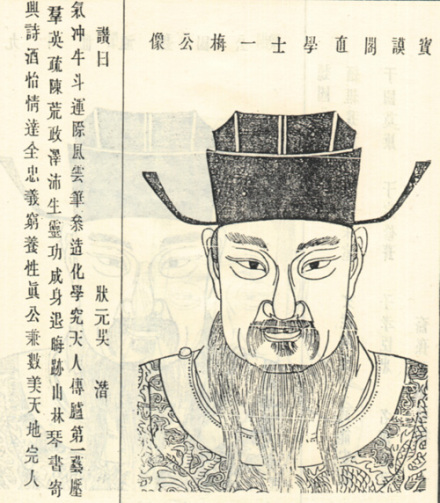 寶謨閣直學士一梅公像
讚曰 狀元吳 潛
氣冲牛斗運際風雲筆叅造化學究天人傳臚第一藝壓
羣英疏陳荒政澤沛生靈功成身退晦跡山林琴書寄
興詩酒怡情達全忠義窮養性眞公兼數美天地完人